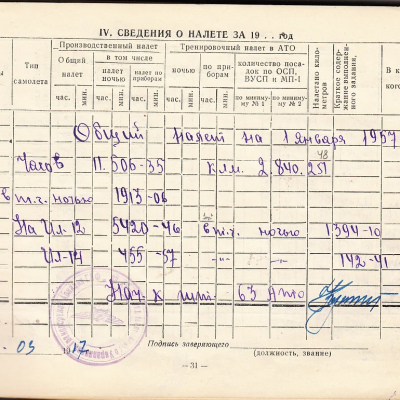 IV. СВЕДЕНИЯ О НАЛЕТЕ ЗА 19 . . год
Тип самолета
Производственный налет
Тренировочный налет в АТО
Налетано километров
Краткое содержание выполненного задания,
В к
кого
Общий налет
в том числе
налет ночью
налет по приборам
ночью
по приборам
количество посадок по ОСП, ВУСП и МП-1
по минимуму № 1
по минимуму № 2
час. мин. час. мин. час. мин. час. мин. час. мин.
Общий налет на 1 января 1957
Часов 11.506-35 клм. 2.840.251
48
в т.ч. ночью 1913-06
На Ил-12 5420-46 в т.ч. ночью 1394-10
Ил-14 455-57 -"- -"- 142-41
Нач. к шт. 63 АТО
03 19
Подпись заверяющего
(должность, звание)
— 31 —